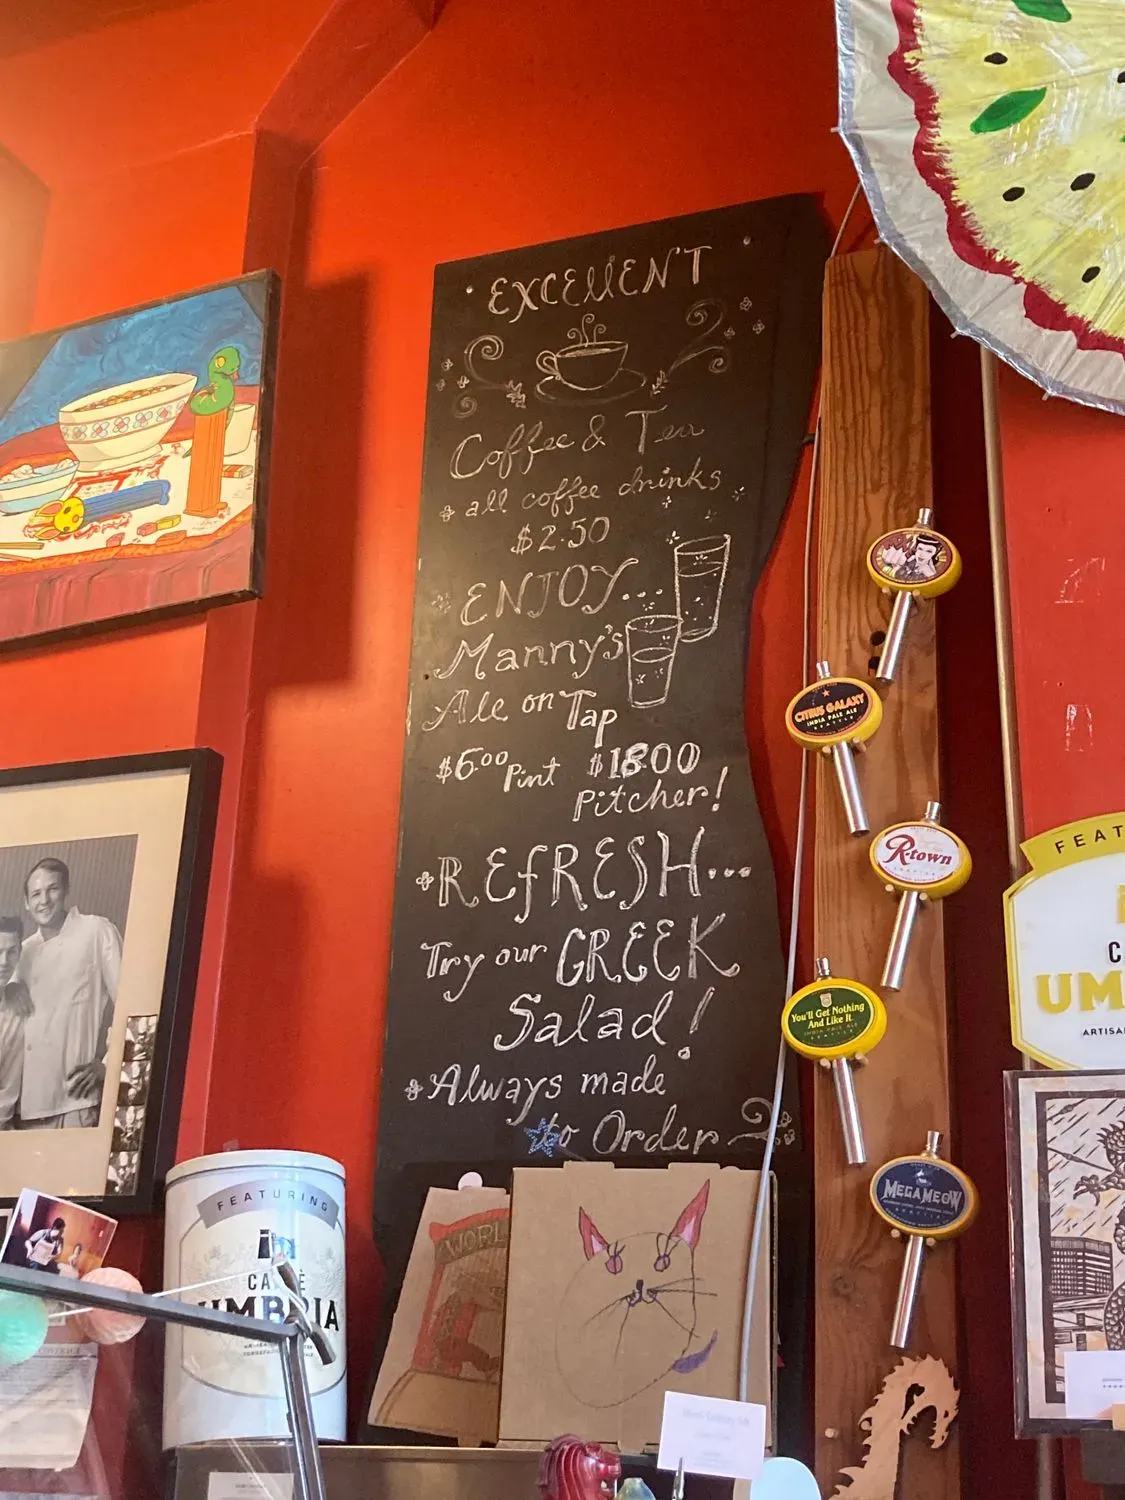 EXCELLENT
Coffee & Tea
all coffee drinks
$2.50
ENJOY...
Manny's
Ale on Tap
$6.00 Pint $18.00
Pitcher!
REfRESH...
Try our GREEK
Salad!
Always made
to Order
CITRUS GALAXY
INDIA PALE ALE
SEATTLE
R-town
SEATTLE
You'll Get Nothing
And Like It
INDIA PALE ALE
SEATTLE
MEGAMEOW
SEATTLE
FEAT
C
UM
ARTISA
FEATURING
CAFFÈ
UMBRIA
WORL